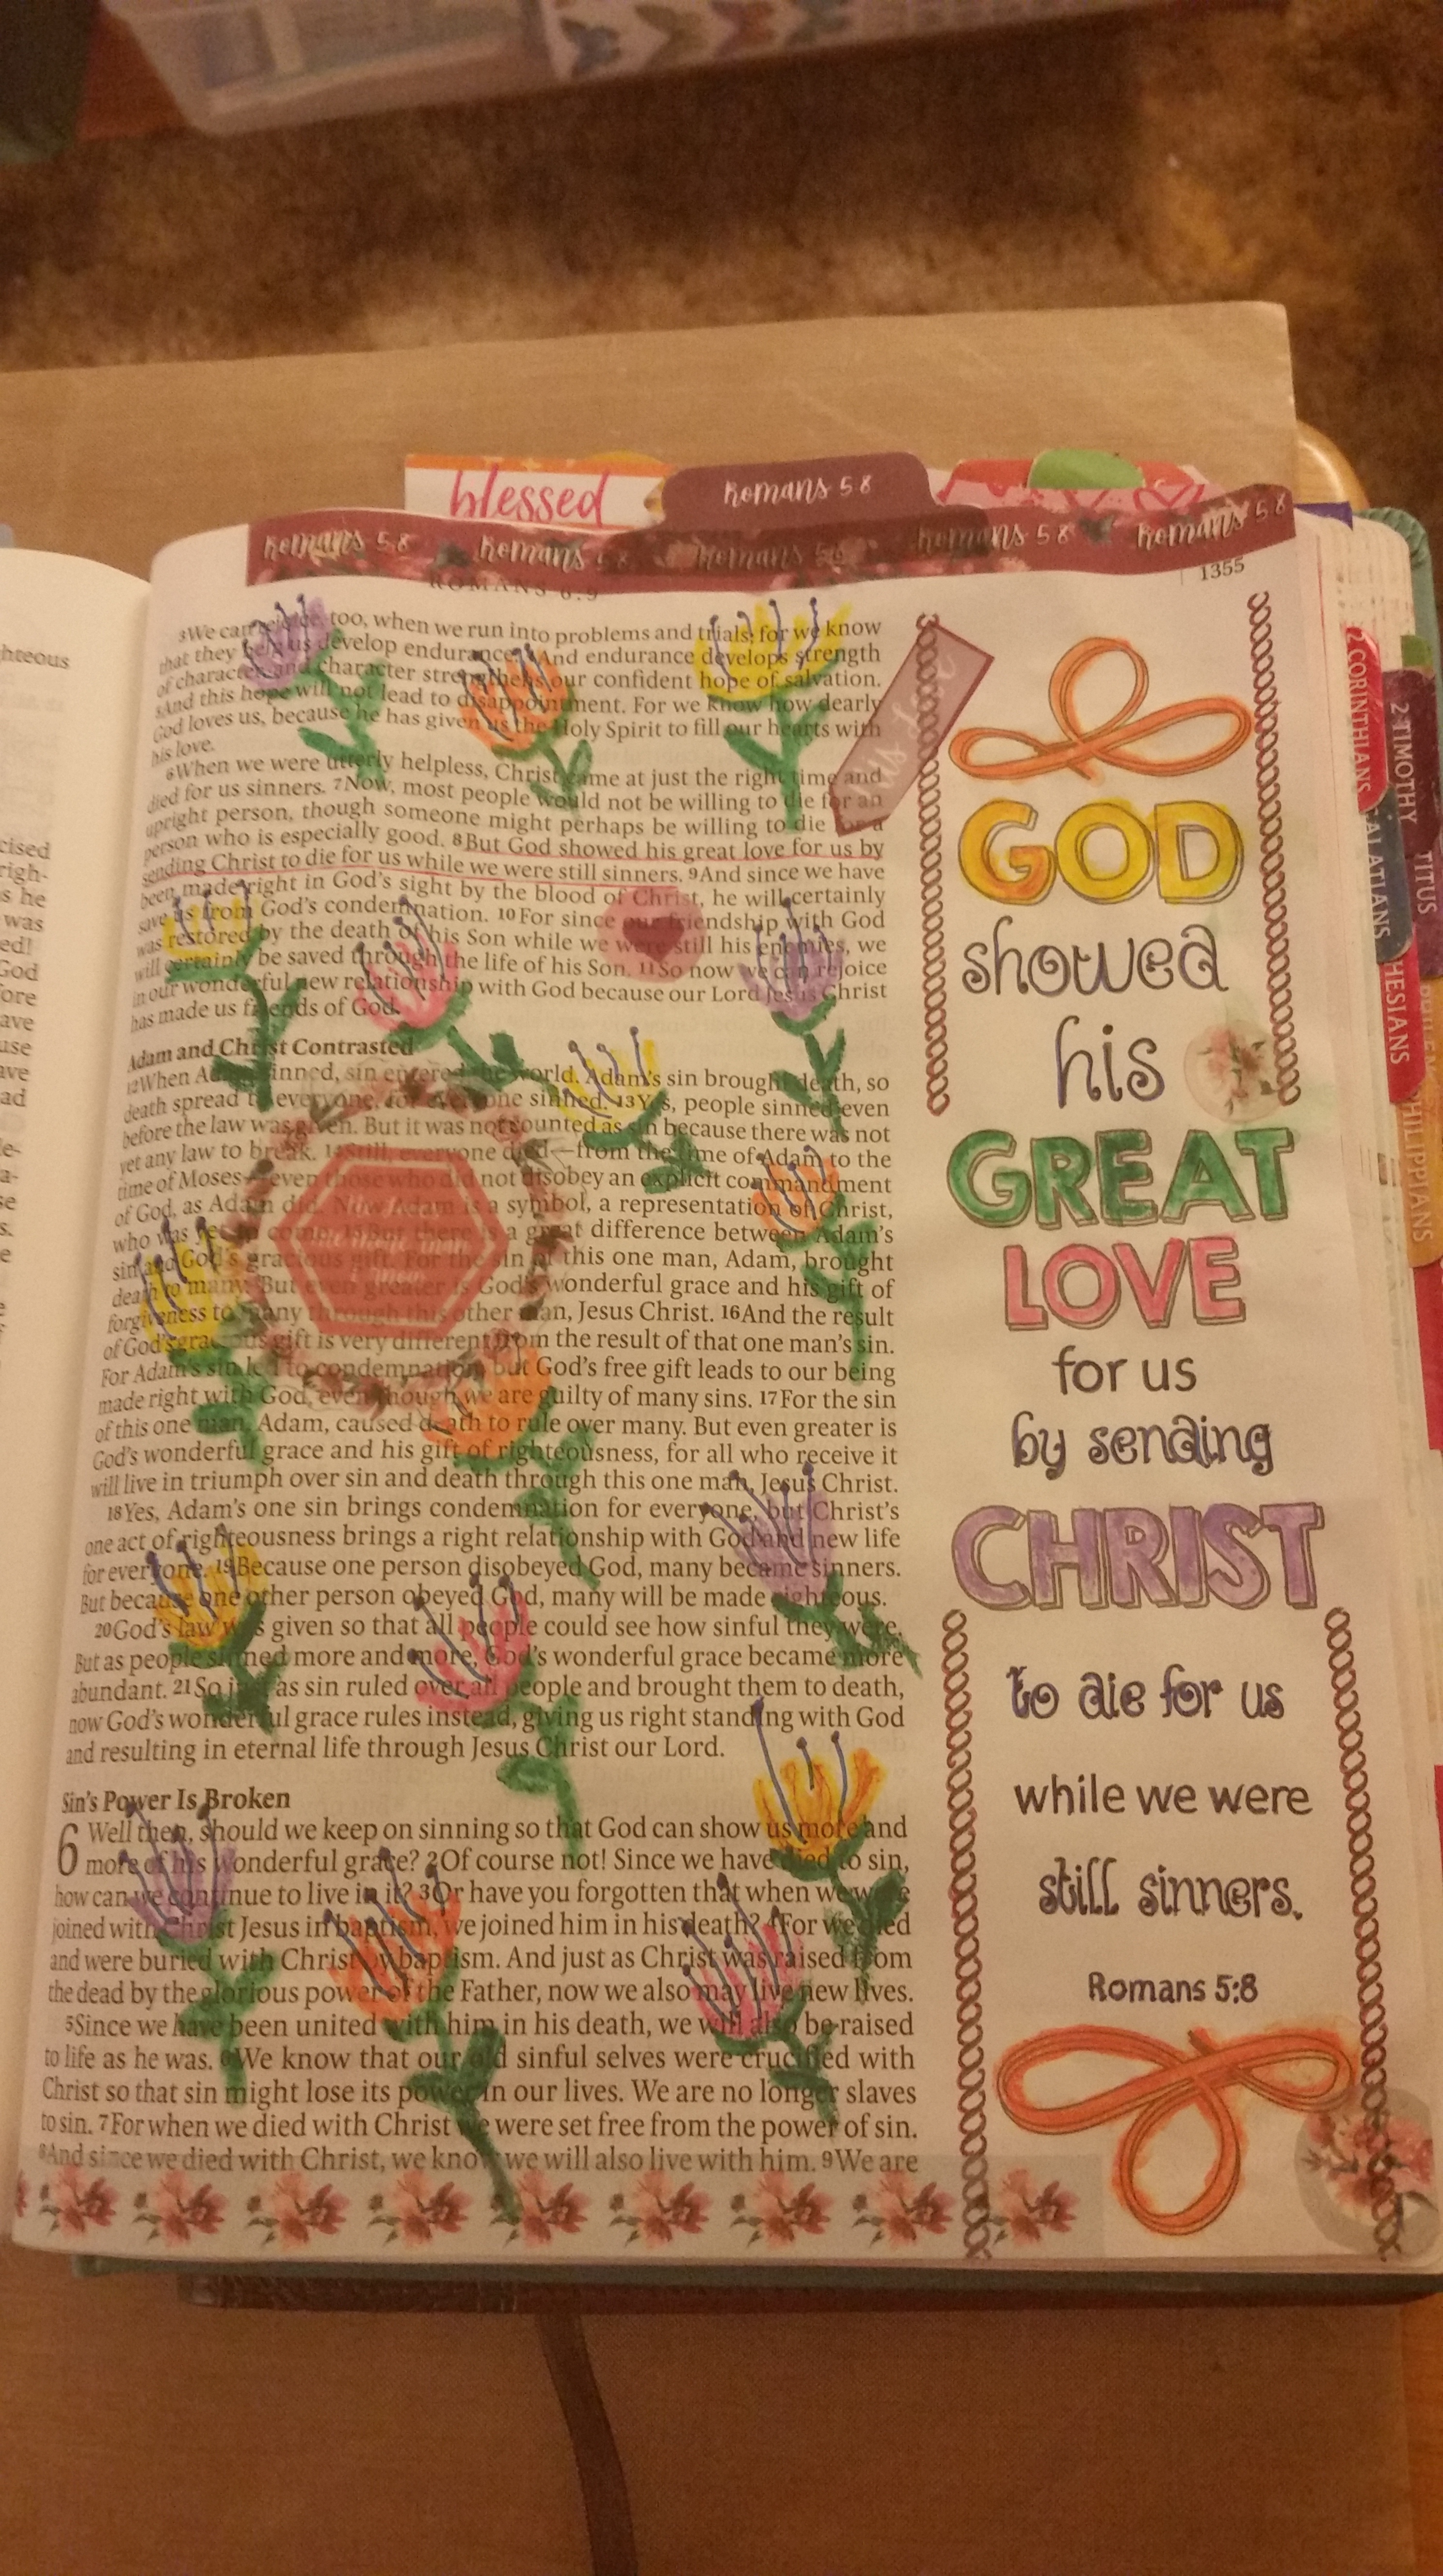 blessed
Romans 5:8
Romans 5:8 Romans 5:8 Romans 5:8 Romans 5:8 Romans 5:8
ROMANS 6:9
1355
3We can rejoice, too, when we run into problems and trials, for we know
that they help us develop endurance. 4And endurance develops strength
of character, and character strengthens our confident hope of salvation.
5And this hope will not lead to disappointment. For we know how dearly
God loves us, because he has given us the Holy Spirit to fill our hearts with
his love.
6When we were utterly helpless, Christ came at just the right time and
died for us sinners. 7Now, most people would not be willing to die for an
upright person, though someone might perhaps be willing to die for a
person who is especially good. 8But God showed his great love for us by
sending Christ to die for us while we were still sinners. 9And since we have
been made right in God's sight by the blood of Christ, he will certainly
save us from God's condemnation. 10For since our friendship with God
was restored by the death of his Son while we were still his enemies, we
will certainly be saved through the life of his Son. 11So now we can rejoice
in our wonderful new relationship with God because our Lord Jesus Christ
has made us friends of God.
Adam and Christ Contrasted
12When Adam sinned, sin entered the world. Adam's sin brought death, so
death spread to everyone, for everyone sinned. 13Yes, people sinned even
before the law was given. But it was not counted as sin because there was not
yet any law to break. 14Still, everyone died—from the time of Adam to the
time of Moses—even those who did not disobey an explicit commandment
of God, as Adam did. Now Adam is a symbol, a representation of Christ,
who was yet to come. 15But there is a great difference between Adam's
sin and God's gracious gift. For the sin of this one man, Adam, brought
death to many. But even greater is God's wonderful grace and his gift of
forgiveness to many through this other man, Jesus Christ. 16And the result
of God's gracious gift is very different from the result of that one man's sin.
For Adam's sin led to condemnation, but God's free gift leads to our being
made right with God, even though we are guilty of many sins. 17For the sin
of this one man, Adam, caused death to rule over many. But even greater is
God's wonderful grace and his gift of righteousness, for all who receive it
will live in triumph over sin and death through this one man, Jesus Christ.
18Yes, Adam's one sin brings condemnation for everyone, but Christ's
one act of righteousness brings a right relationship with God and new life
for everyone. 19Because one person disobeyed God, many became sinners.
But because one other person obeyed God, many will be made righteous.
20God's law was given so that all people could see how sinful they were.
But as people sinned more and more, God's wonderful grace became more
abundant. 21So just as sin ruled over all people and brought them to death,
now God's wonderful grace rules instead, giving us right standing with God
and resulting in eternal life through Jesus Christ our Lord.
Sin's Power Is Broken
6 Well then, should we keep on sinning so that God can show us more and
more of his wonderful grace? 2Of course not! Since we have died to sin,
how can we continue to live in it? 3Or have you forgotten that when we were
joined with Christ Jesus in baptism, we joined him in his death? 4For we died
and were buried with Christ by baptism. And just as Christ was raised from
the dead by the glorious power of the Father, now we also may live new lives.
5Since we have been united with him in his death, we will also be raised
to life as he was. 6We know that our old sinful selves were crucified with
Christ so that sin might lose its power in our lives. We are no longer slaves
to sin. 7For when we died with Christ we were set free from the power of sin.
8And since we died with Christ, we know we will also live with him. 9We are
GOD
showed
his
GREAT
LOVE
for us
by sending
CHRIST
to die for us
while we were
still sinners.
Romans 5:8
2 CORINTHIANS
GALATIANS
HESIANS
PHILIPPIANS
2 TIMOTHY
TITUS